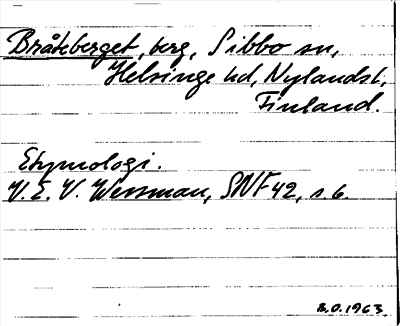 Bråteberget, berg, Sibbo sn,
Helsinge hd, Nylandsl.
Finland.
Etymologi.
V. E. V. Wessman, SNF 42, s. 6.
B.O. 1963